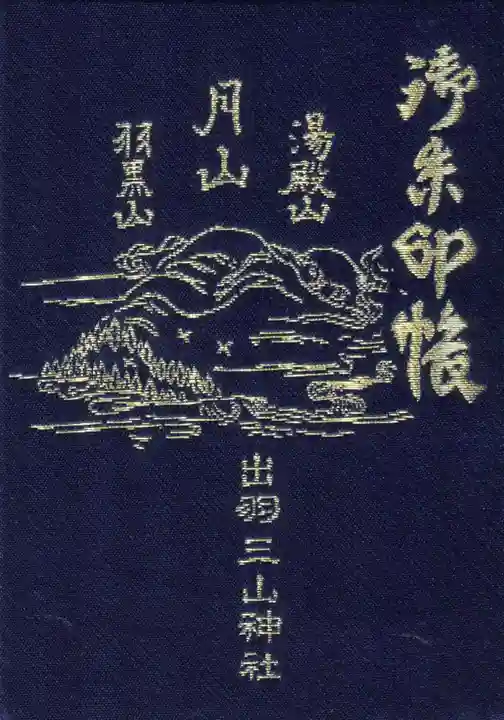 御朱印帳
湯殿山
月山
羽黒山
出羽三山神社